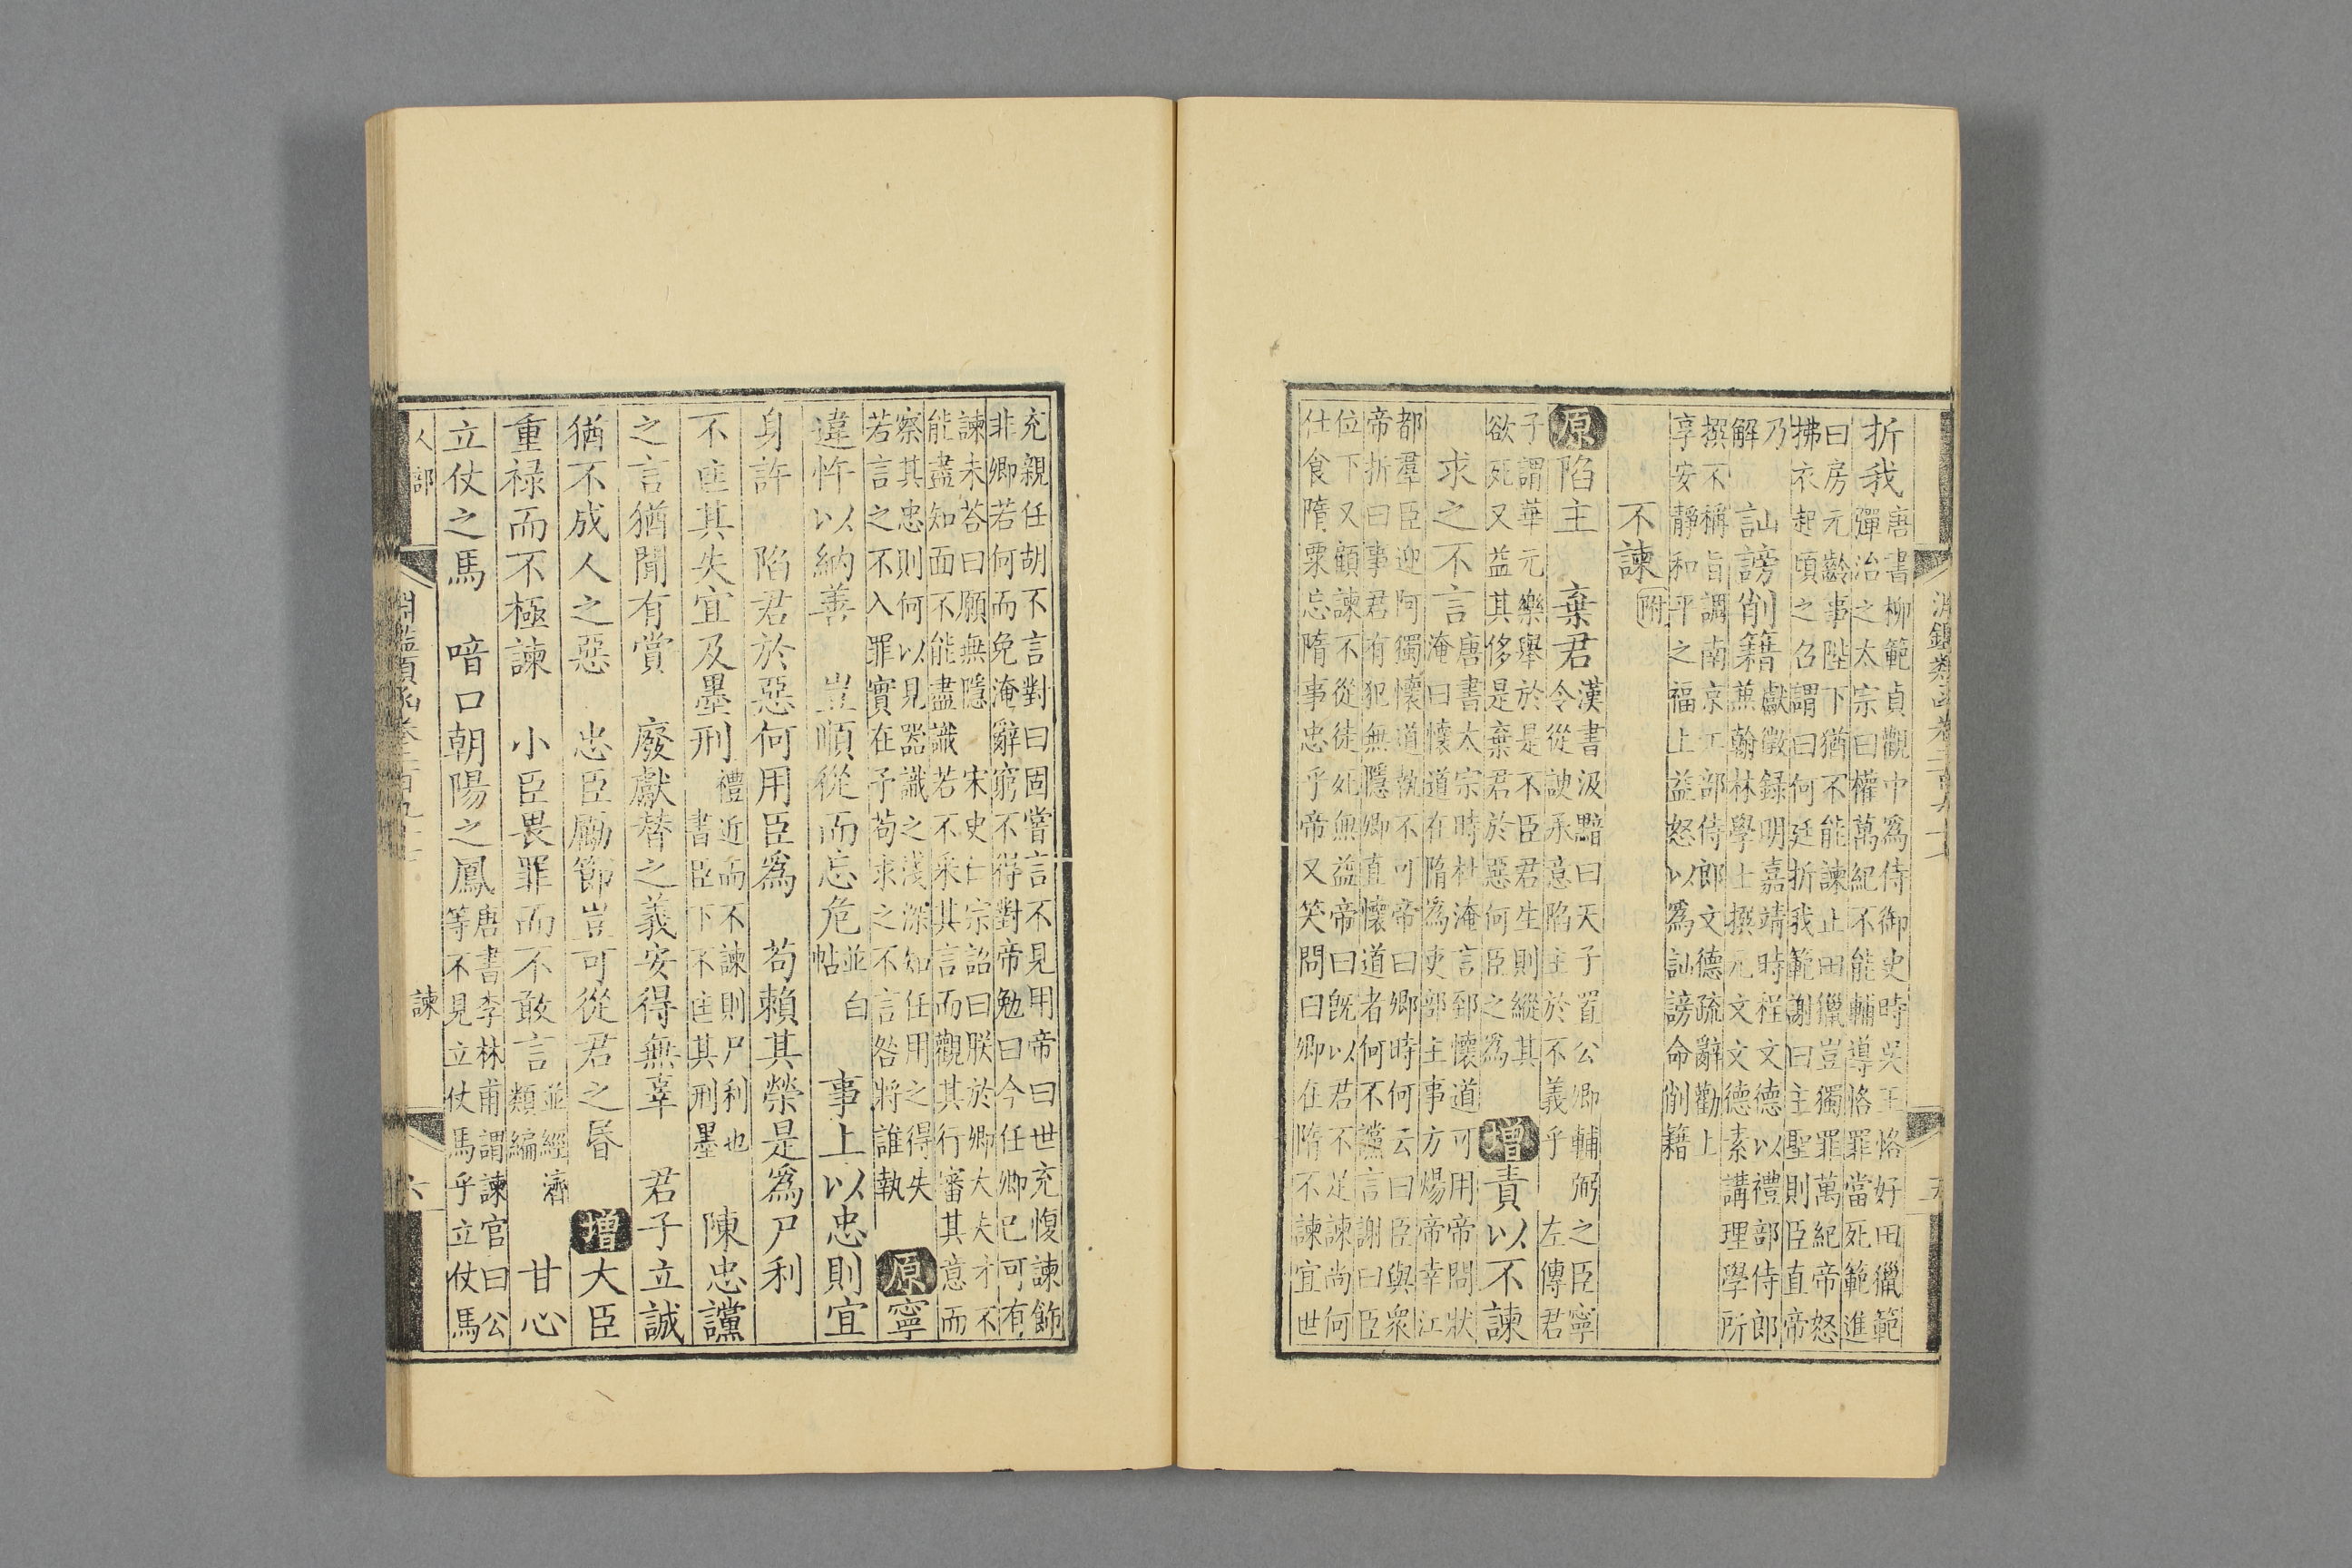 淵鑑類函卷二百九十
折我
唐書柳範貞觀中爲侍御史時吳王恪好田獵範
彈治之太宗曰權萬紀不能輔導恪罪當死範進
曰房元齡事陛下猶不能諫止田獵豈獨罪萬紀帝怒
拂衣起頃之召謂曰何廷折我範謝曰主聖則臣直帝
乃
解
訕謗削籍
獻徵録明嘉靖時程文德以禮部侍郎
兼翰林學士撰元文文德素講理學所
撰不稱旨調南京工部侍郎文德疏辭勸上
享安靜和平之福上益怒以爲訕謗命削籍
不諫附
原陷主 棄君
漢書汲黯曰天子置公卿輔弼之臣寧
令從諛承意陷主於不義乎 左傳君
子謂華元樂舉於是不臣君生則縱其
欲死又益其侈是棄君於惡何臣之爲
增責以不諫
求之不言
唐書太宗時杜淹言郅懷道可用帝問狀
淹曰懷道在隋爲吏部主事方煬帝幸江
都羣臣迎阿獨懷道執不可帝曰卿時何云曰臣與衆
帝折曰事君有犯無隱卿直懷道者何不讜言謝曰臣
位下又顧諫不從徒死無益帝曰旣以君不足諫尚何
仕食隋粟忘隋事忠乎帝又笑問曰卿在隋不諫宜世
充親任胡不言對曰固嘗言不見用帝曰世充愎諫飾
非卿若何而免淹辭窮不得對帝勉曰今任卿已可有
諫未荅曰願無隱 宋史仁宗詔曰朕於卿大夫才不
能盡知面不能盡識若不采其言而觀其行審其意而
察其忠則何以見器識之淺深知任用之得失
若言之不入罪實在予苟求之不言咎將誰執
原寧
違忤以納善 豈順從而忘危
並白
帖
事上以忠則宜
身許 陷君於惡何用臣爲 苟賴其榮是爲尸利
不匡其失宜及墨刑
禮近而不諫則尸利也
書臣下不匡其刑墨
陳忠讜
之言猶聞有賞 廢獻替之義安得無辜 君子立誠
猶不成人之惡 忠臣勵節豈可從君之昏 增大臣
重祿而不極諫 小臣畏罪而不敢言
並經濟
類編
甘心
立仗之馬 喑口朝陽之鳳
唐書李林甫謂諫官曰公
等不見立仗馬乎立仗馬
人部
淵鑑類函卷二百九十
諫
六